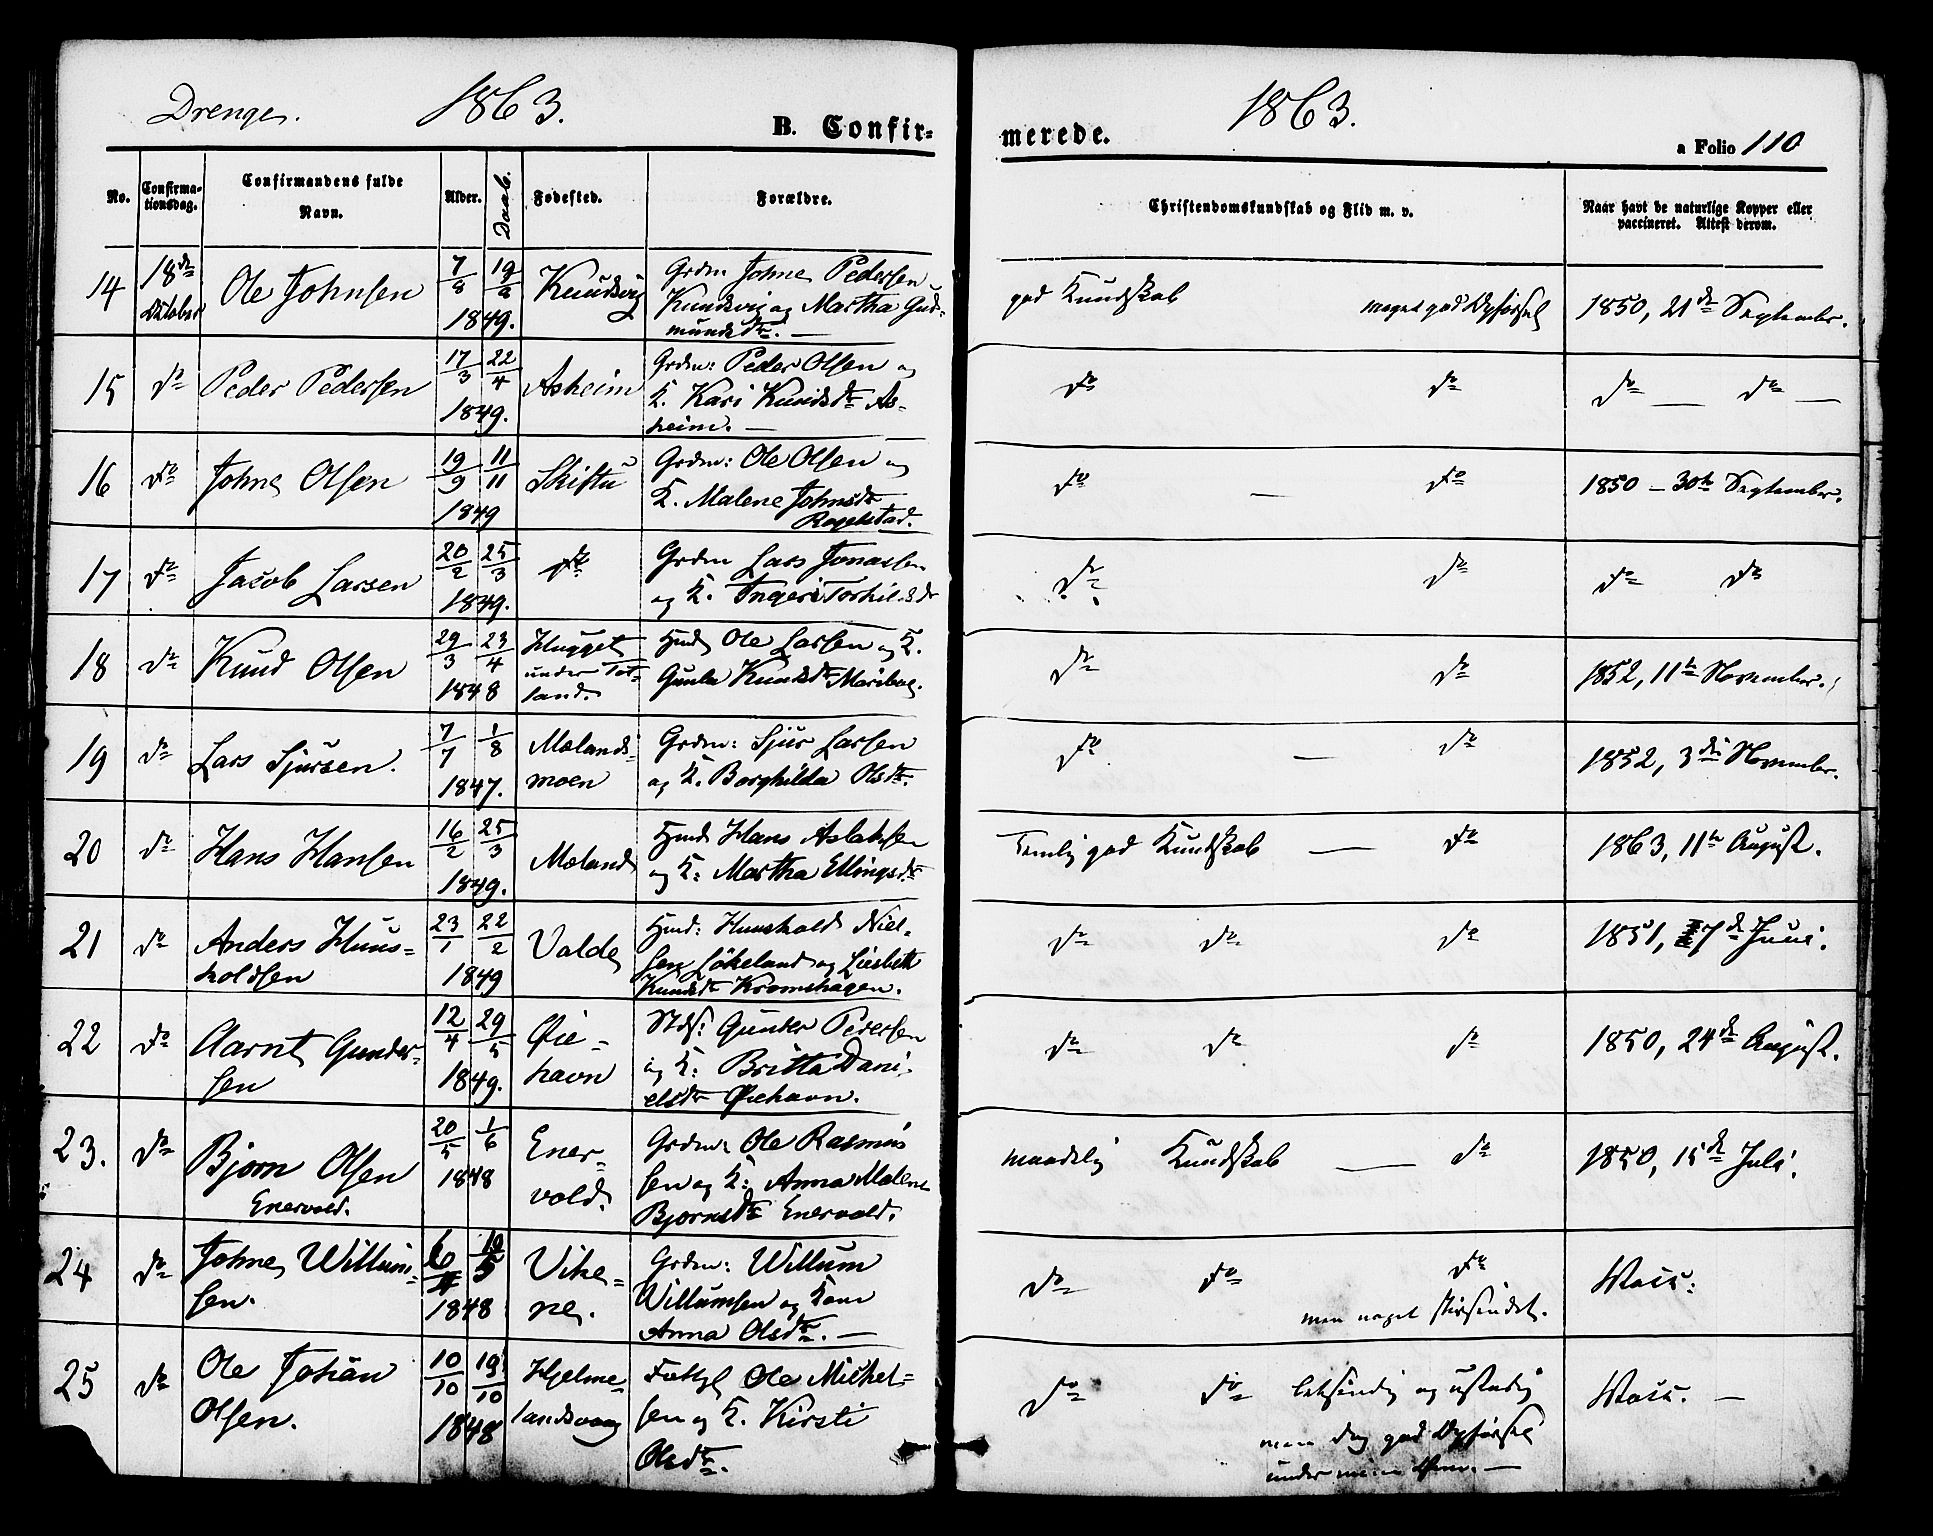 Drenge. 1863. 1863.
B. Confir-
merede.
a Folio 110
No. Confirma-
tionsdag. Confirmandens fulde
Navn. Alder. Daab. Fødested. Forældre. Christendomskundskab og Flid m. v. Naar havt de naturlige Kopper eller
vaccineret. Attest derom.
14 18de Oktober Ole Johnsen 7/8 19/8 1849. Knudsvig Grdm Johne Pedersen
Knudsvig og Martha Gud-
mundsdtr. —
god Kundskab meget god Opførsel 1850, 21de September.
15 do Peder Pedersen 17/3 22/4 1849. Asheim Grdm: Peder Olsen og
K. Kari Knudsdtr As-
heim. —
do do do — do —
16 do Johne Olsen 19/9 11/11 1849 Skiftu Grdm: Ole Olsen og
K. Malene Johnsdtr
Ragelstad.
do — do 1850 — 30te September.
17 do Jacob Larsen 20/2 25/3 1849. do Grdm Lars Jonassen
og K. Ingeri Torkilsdr
do do do do
18 do Knud Olsen 29/3 23/4 1848 Hugget
under Tot-
land. Hmd Ole Larsen og K.
Gunla Knudsdtr
do do 1852, 11te November.
19 do Lars Sjursen. 7/7 1/8 1847. Mælands-
moen Grdm: Sjur Larsen
og K. Borghilda Olsdtr.
do — do 1852, 3die November.
20 do Hans Hansen 16/2 25/3 1849. Mæland Hmd Hans Aslaksen
og K: Martha Ellingsdtr
Temlig god Kundskab — do 1863, 11te August.
21 do Anders Huus-
holdsen 23/1 22/2 1849 Valde Hmd: Huushold Niel-
sen Løkeland og Liesbeth
Knudsdtr Kromshagen.
do do do 1851, 7de Juni.
22 do Aarnt Gunder-
sen 12/4 29/5 1849. Øie-
havn Stds: Gunder Pedersen
og K: Britta Dani-
elsdtr Øiehavn.
do do do 1850, 24de August.
23. do Bjørn Olsen
Enervold. 20/5 1/6 1848 Ener-
vold. Grdm: Ole Rasmus
sen og K: Anna Malene
Bjørnsdtr Enervold.
maadelig Kundskab — do 1850, 15de Juli.
24 do Johne Willum-
sen. 1848 Vike-
ne. Grdm: Willum
Willumsen og Kone
Anna Olsdtr. —
do do do
men noget
25 do Ole Johan
Olsen. 10/10 19/10 1848 Hjelme-
landsvaag Ole Mickel-
sen og K. Kirsti
Olsdtr.
do do letsindig og ustadig
men dog god Opførsel
under